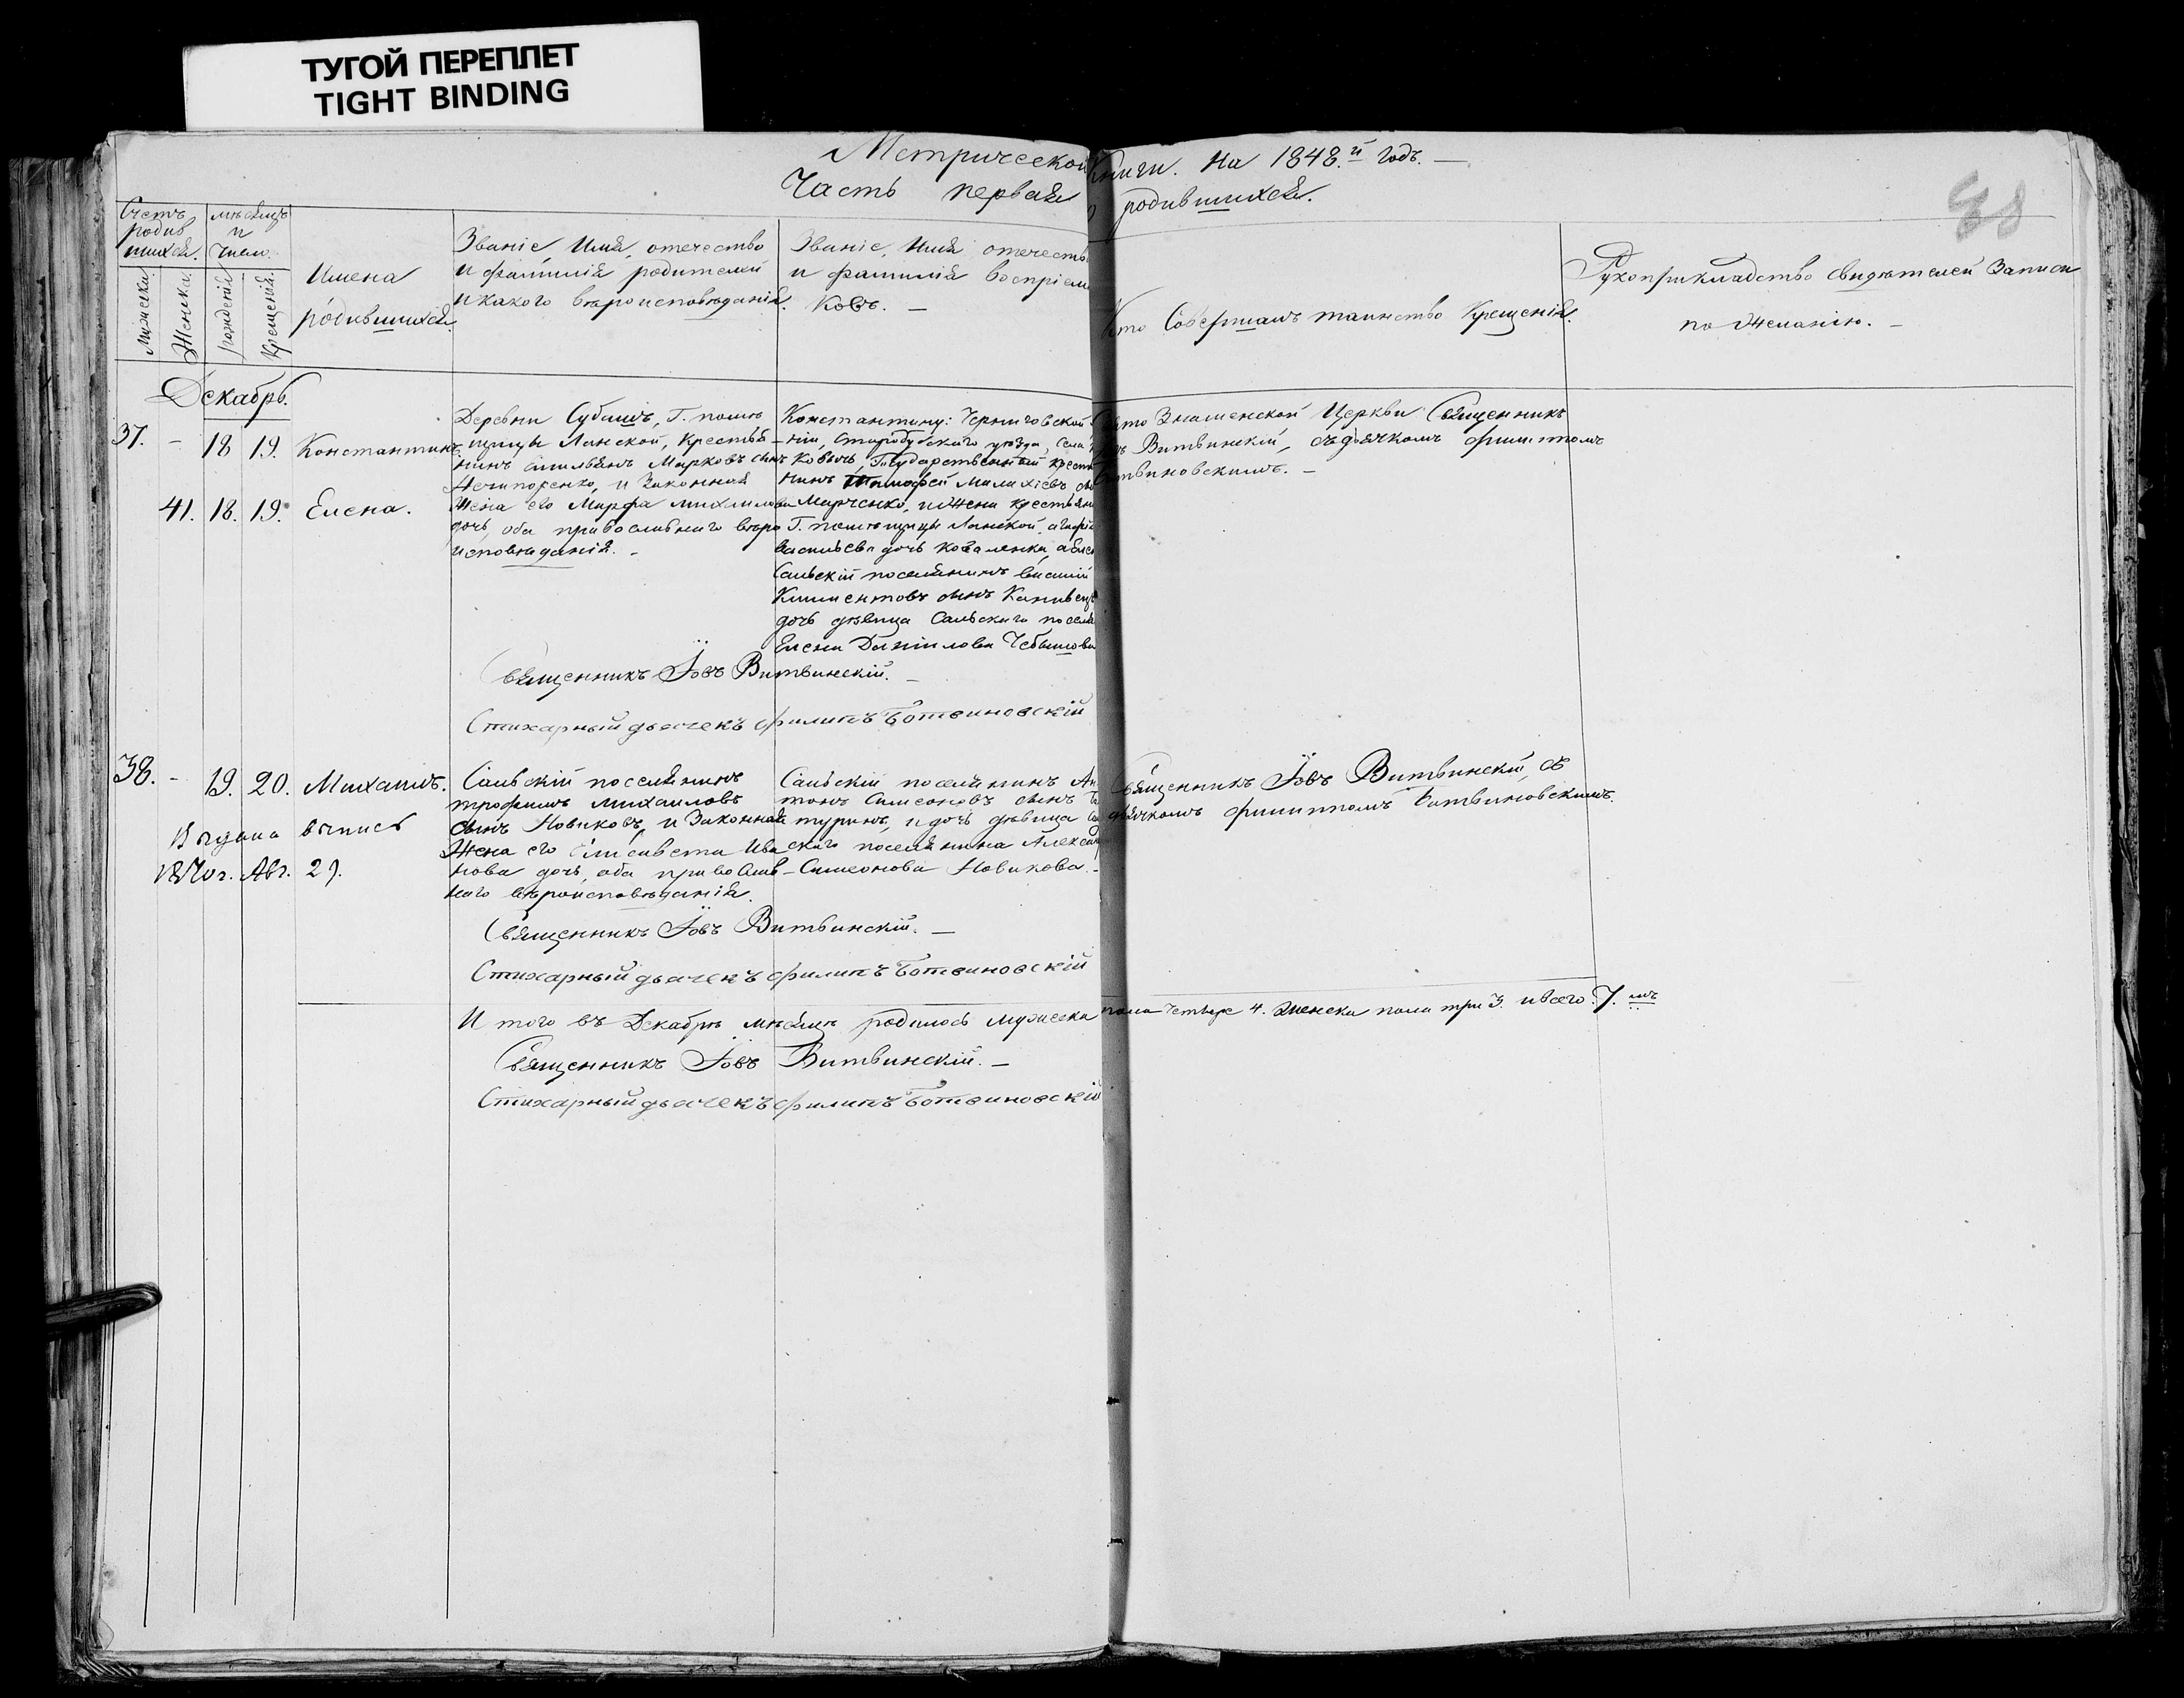 ТУГОЙ ПЕРЕПЛЕТ
TIGHT BINDING
Метрической Книги. на 1848.й годъ. —
Часть первая родившихся.
88
Счетъ родив шихся.
Мужеска
Женска.
мѣсяцъ и число.
рожденія
Крещенія.
Имена
родившихся
Званіе, Имя, отечество
и фамилія родителей
и какого вѣроисповѣданія.
Званіе, Имя отечество
и фамилія воспріем
ковъ. —
Кто Совершалъ таинство Крещенія.
Рукоприкладство свидѣтелей Записи
по желанію. —
Декабрь.
37. - 18 19. Константинъ
41. 18. 19. Елена.
Деревни Г. помѣ
щицы Ланской, Крестья-
нинъ Марковъ сынъ
Нечипоренко, и Законная
Жена его Марфа Михаилова
дочь, оба православнаго вѣро
исповѣданія. -
Константину: Черниговской
ніи, Стародубскаго уѣзда, Села
ковичъ, Государственный крестья
нинъ Тимофей Малахіевъ сы
Марченко, и Жена крестьяни
Г. помѣщицы Ланской
Васильева дочь Коваленка, а Елен
Сальскій поселянинъ
Климентовъ сынъ
дочь дѣвица Сальскаго посел
Елена Даніилова
Знаменской Церкви Священникъ
Витвинскій, съ дьячкомъ Филиппомъ
Священникъ Іовъ Витвинскій. —
Стихарный дьячекъ Филипъ Ботвиновскій
38. - 19. 20. Михаилъ.
Выдана выпись
1870 г. Авг. 29.
Сальскій поселянинъ
трофимъ Михаиловъ
сынъ Новиковъ, и Законная
Жена его Елисавета Ива
нова дочь, оба православ-
наго вѣроисповѣданія.
Сальскій поселянинъ Ан
тонъ Симеоновъ сынъ
туринъ, и дочь дѣвица
скаго поселянина Алексан
Симеонова Новикова. -
Священникъ Іовъ Витвинскій, съ
дьячкомъ Филиппомъ Ботвиновскимъ.
Священникъ Іовъ Витвинскій. —
Стихарный дьячекъ Филипъ Ботвиновскій
И того въ Декабрѣ мѣсяцѣ родилось мужеска пола четыре 4. женска пола три 3. и всего. 7. мь
Священникъ Іовъ Витвинскій. —
Стихарный дьячекъ Филипъ Ботвиновскій